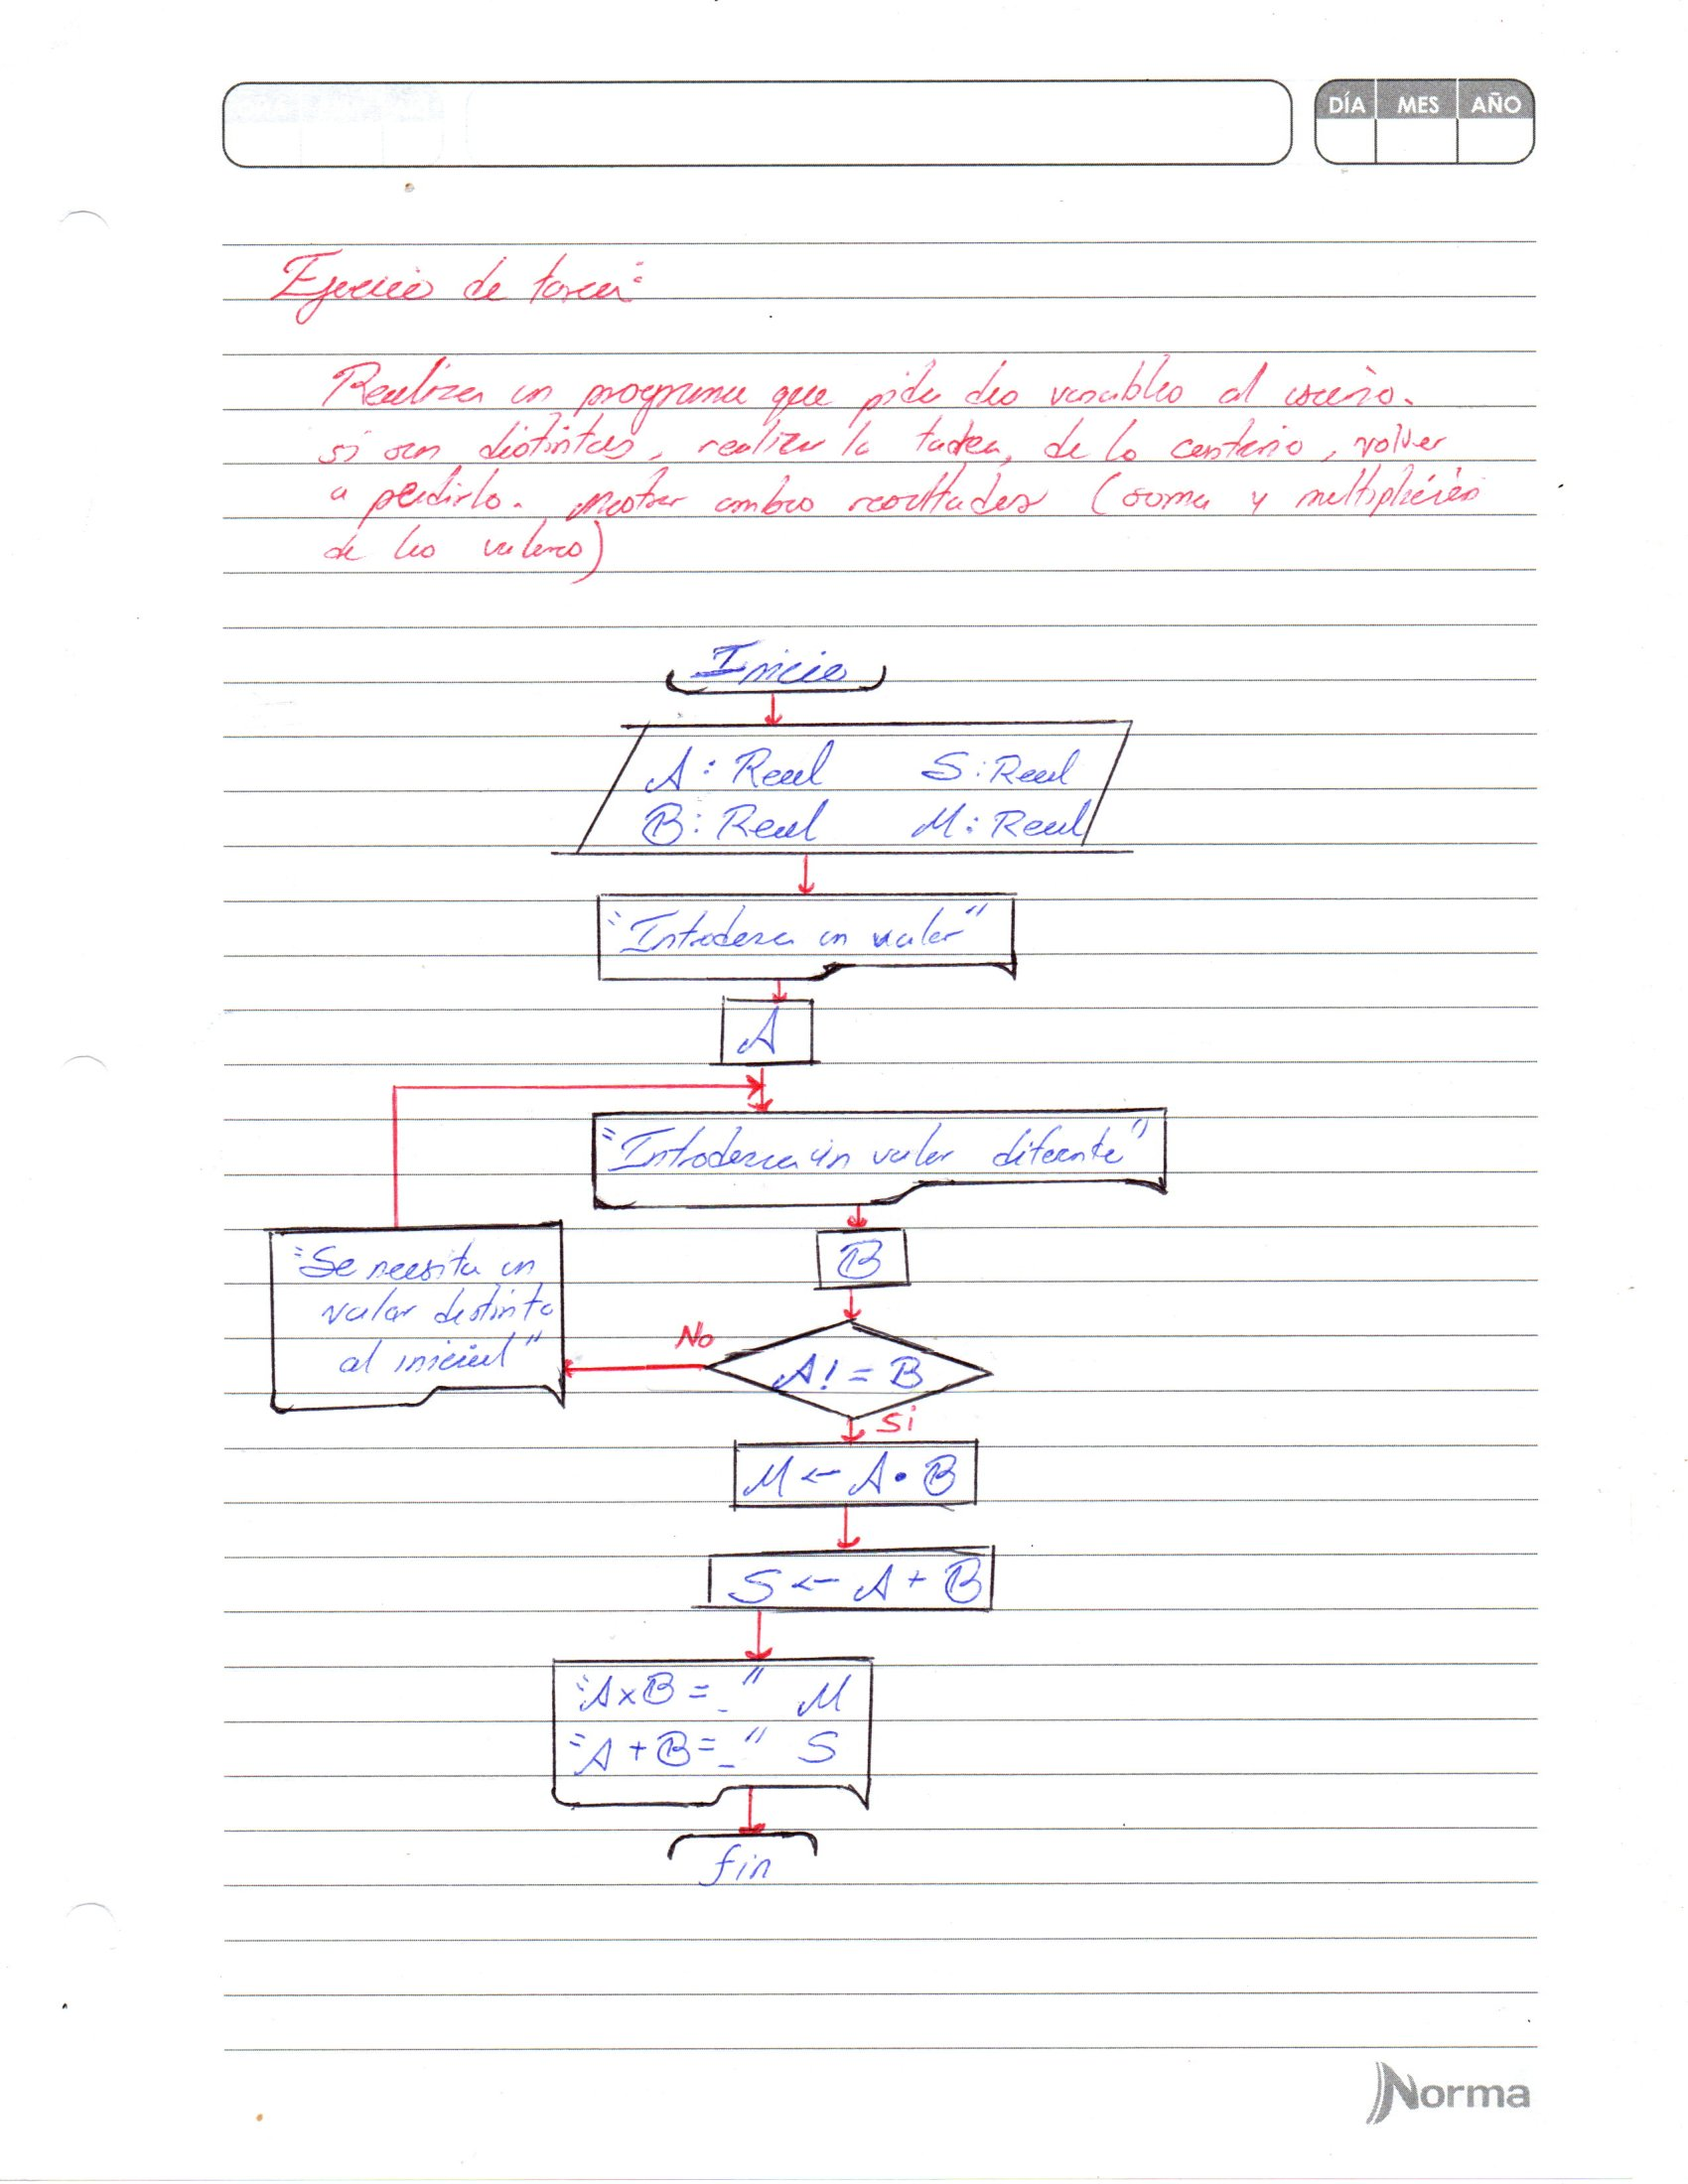 DÍA MES AÑO
Ejercicio de tarea:
Realizar un programa que pida dos variables al usuario.
si son distintas, realizar la tarea, de lo contario, volver
a pedirlo. Mostrar ambos resultados (suma y multiplicación
de los valores)
Inicio
A: Real S: Real
B: Real M: Real
"Introdezca un valor"
A
"Introdezca un valor difernte"
B
"Se necesita un
valor destinto
al inicial"
No
A! = B
Si
M ← A • B
S ← A + B
"A x B = _" M
"A + B = _" S
fin
Norma